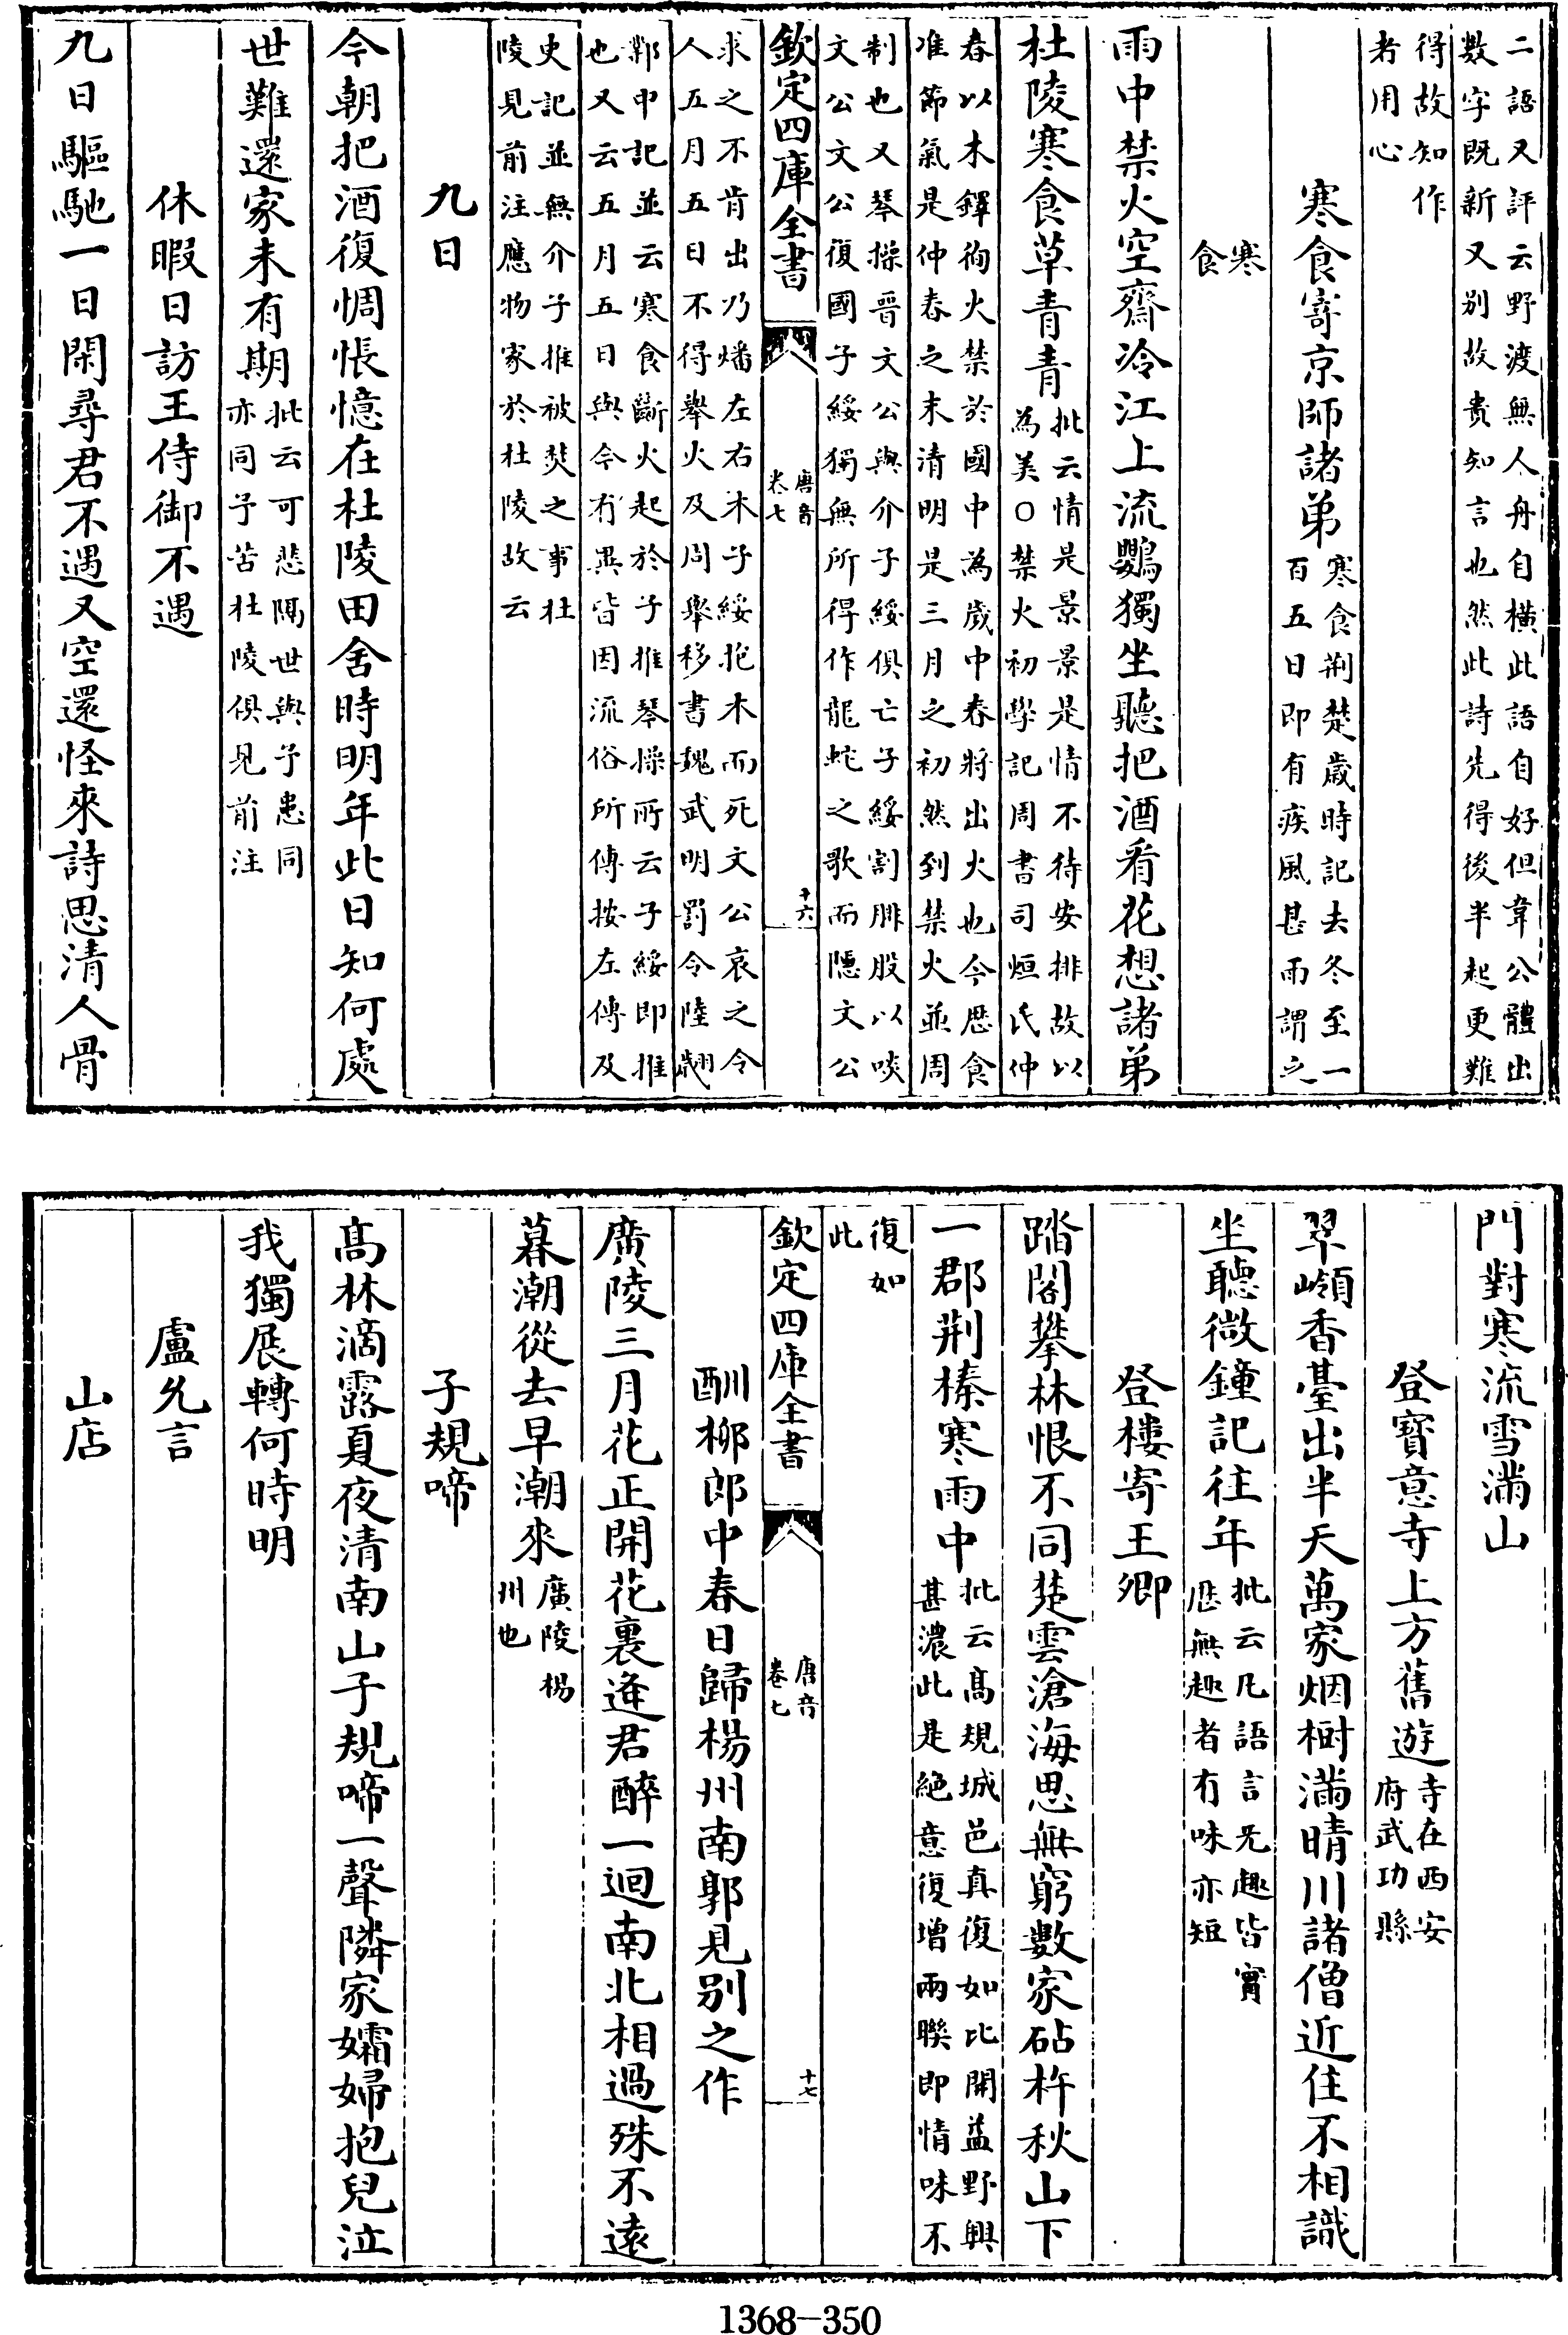 二語又評云野渡無人舟自橫此語自好但韋公體出
數字既新又别故貴知言也然此詩先得後半起更難
得故知作
者用心
寒食寄京師諸弟寒食荆楚歲時記去冬至一
百五日即有疾風甚雨謂之
寒
食
雨中禁火空齋冷江上流鸎獨坐聽把酒看花想諸弟
杜陵寒食草青青批云情是景景是情不待安排故以
為美○禁火初學記周書司烜氏仲
春以木鐸徇火禁於國中為歲中春將出火也今歴食
准節氣是仲春之末清明是三月之初然到禁火並周
制也又琴操晋文公與介子綏俱亡子綏割腓股以啖
文公文公復國子綏獨無所得作龍蛇之歌而隱文公
欽定四庫全書
唐音
卷七
十六
求之不肯出乃燔左右木子綏抱木而死文公哀之令
人五月五日不得舉火及周舉移書魏武明罰令陸翽
鄴中記並云寒食斷火起於子推琴操所云子綏即推
也又云五月五日與今有異皆因流俗所傳按左傳及
史記並無介子推被焚之事杜
陵見前注應物家於杜陵故云
九日
今朝把酒復惆悵憶在杜陵田舍時明年此日知何處
世難還家未有期批云可悲隔世與予患同
亦同予苦杜陵俱見前注
休暇日訪王侍御不遇
九日驅馳一日閑尋君不遇又空還怪來詩思清人骨
門對寒流雪滿山
登寶意寺上方舊遊寺在西安
府武功縣
翠嶺香臺出半天萬家烟樹滿晴川諸僧近住不相識
坐聽微鐘記往年批云凡語言无趣皆實
歴無趣者有味亦短
登樓寄王卿
踏閣攀林恨不同楚雲滄海思無窮數家砧杵秋山下
一郡荆榛寒雨中批云高規城邑真復如比開益野興
甚濃此是絶意復增兩聨即情味不
復如
此
欽定四庫全書
唐音
卷七
十七
酬柳郎中春日歸楊州南郭見别之作
廣陵三月花正開花裏逢君醉一迴南北相過殊不遠
暮潮從去早潮來廣陵楊
州也
子規啼
高林滴露夏夜清南山子規啼一聲隣家孀婦抱兒泣
我獨展轉何時明
盧允言
山店
1368-350